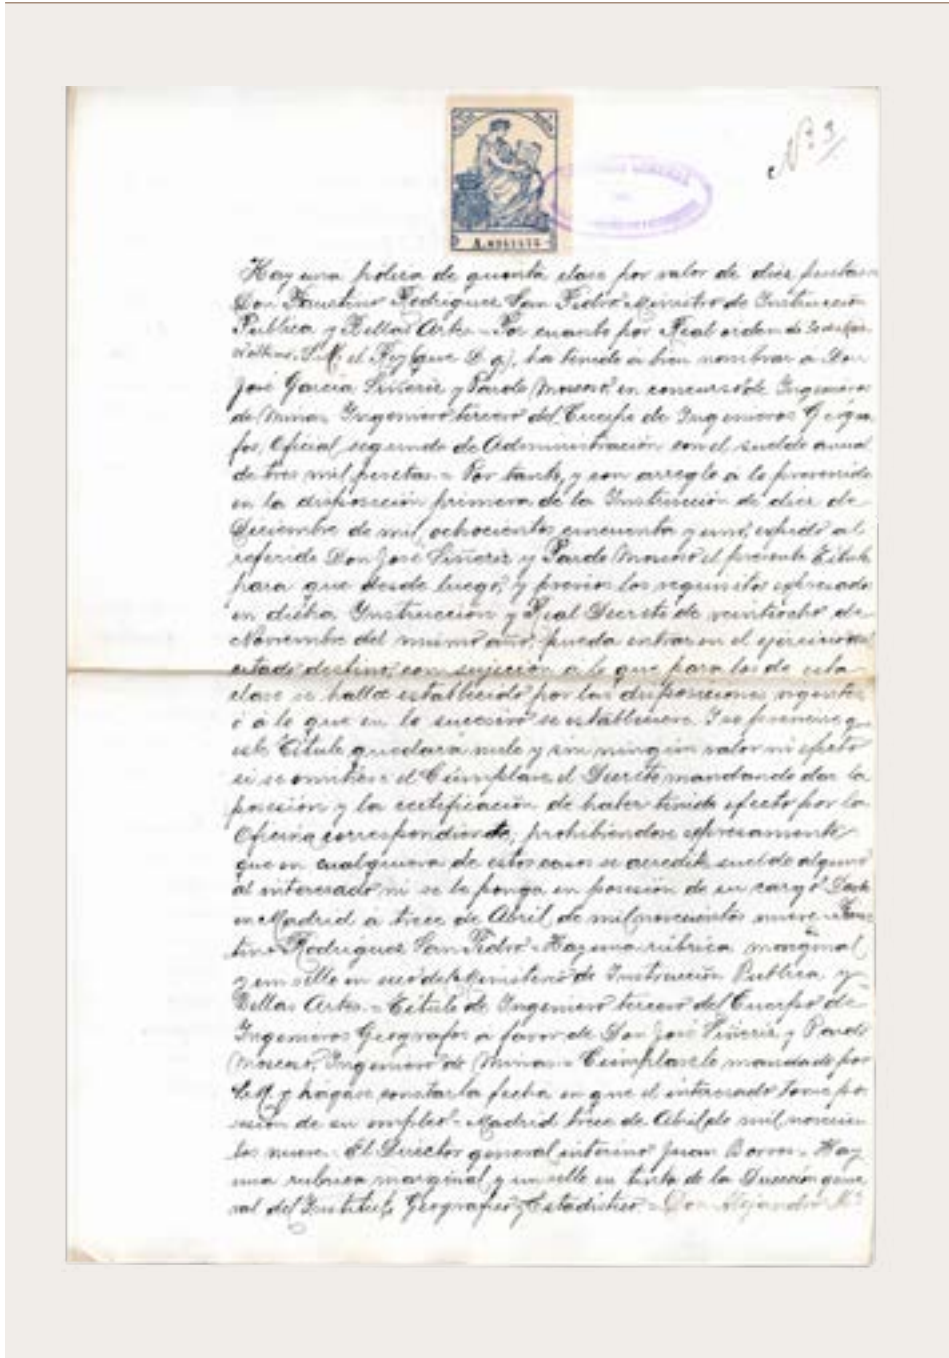 Nº 3
Hay una póliza de quinta clase por valor de diez pesetas
Don Faustino Rodriguez San Pedro Ministro de Instrucción
Publica y Bellas Artes = Por cuanto por Real orden de
S.M. el Rey (que D. g.), ha tenido a bien nombrar a Don
José García Siñeriz y Pardo Moscoso, en concurso de Ingenieros
de Minas Ingeniero tercero del Cuerpo de Ingenieros Geógra-
fos, Oficial segundo de Administración con el sueldo anual
de tres mil pesetas. = Por tanto, y con arreglo a lo prevenido
en la disposición primera de la Instrucción de diez de
Diciembre de mil, ochocientos cincuenta y uno, expido al
referido Don José Siñeriz y Pardo Moscoso el presente Título
para que desde luego, y previos los requisitos expresados
en dicha Instrucción y Real Decreto de veintiocho de
Noviembre del mismo año, pueda entrar en el ejercicio del
citado destino, con sujeción a lo que para los de esta
clase se halla establecido por las disposiciones vigentes
ó a lo que en lo sucesivo se estableciere. Y se previene q.
este Título quedará nulo y sin ningún valor ni efecto
si se omitiese el Cúmplase, el Decreto mandando dar la
posesión y la certificación de haber tenido efecto por la
Oficina correspondiente, prohibiendose expresamente
que en cualquiera de estos casos se acredite sueldo alguno
al interesado ni se le ponga en posesión de su cargo Dado
en Madrid a trece de Abril de mil novecientos nueve = Faus-
tino Rodriguez San Pedro = Hay una rúbrica marginal
y un sello en seco del Ministerio de Instrucción Publica y
Bellas Artes. = Título de Ingeniero tercero del Cuerpo de
Ingenieros Geografos a favor de Don José Siñeriz y Pardo
Moscoso, Ingeniero de Minas = Cúmplase lo mandado por
S.M. y hágase constar la fecha en que el interesado tome po-
sesión de su empleo = Madrid trece de Abril de mil novecien-
tos nueve = El Director general interino Juan Borres = Hay
una rubrica marginal y un sello en tinta de la Dirección gene-
ral del Instituto Geografico y Estadistico = Don Alejandro Mª